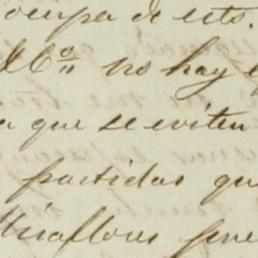 ocupa de esto.
no hay
que se eviten
partidas que
Miraflores